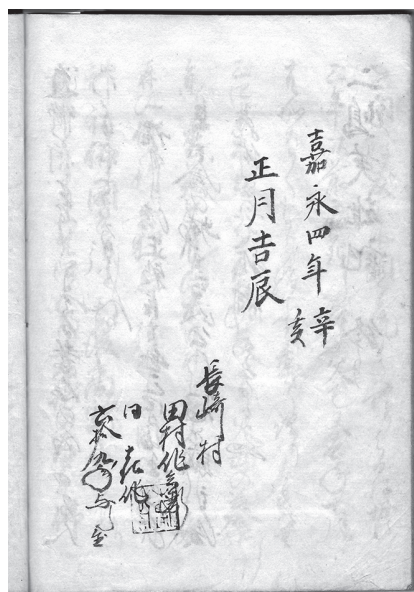 嘉永四年辛亥
正月吉辰
長崎村
田村作兵衛
同 喜作